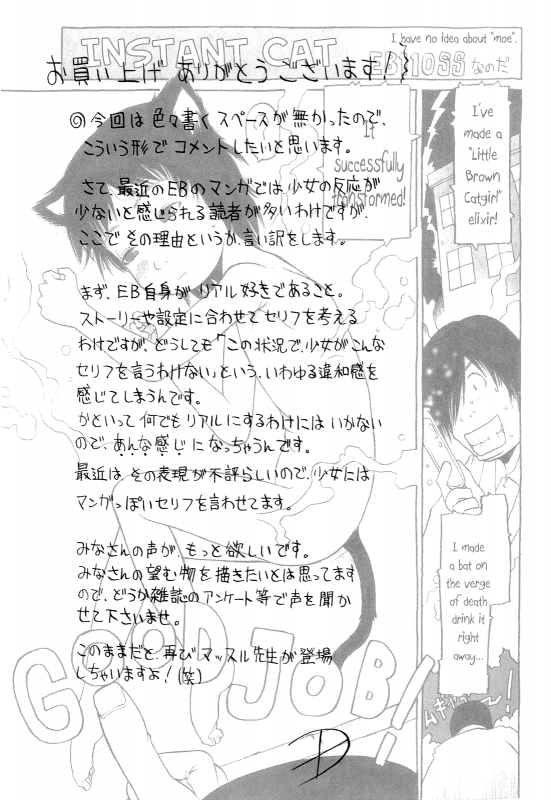 INSTANT CAT
I have no idea about "moe".
EB110SS なのだ
お買い上げ ありがとうございます!!
◎今回は色々書くスペースが無かったので、
こういう形でコメントしたいと思います。
さて、最近のEBのマンガでは、少女の反応が
少ないと感じられる読者が多いわけですが、
ここでその理由というか、言い訳をします。
まず、EB自身がリアル好きであること。
ストーリーや設定に合わせてセリフを考える
わけですが、どうしても「この状況で、少女がこんな
セリフを言うわけない」という、いわゆる違和感を
感じてしまうんです。
かといって何でもリアルにするわけにはいかない
ので、あんな感じになっちゃうんです。
最近は、その表現が不評らしいので、少女には
マンガっぽいセリフを言わせてます。
みなさんの声が、もっと欲しいです。
みなさんの望む物を描きたいとは思ってます
ので、どうか雑誌のアンケート等で声を聞か
せて下さいませ。
このままだと、再びマッスル先生が登場
しちゃいますよ!(笑)
I've
made a
"Little
Brown
Catgirl"
elixir!
It
successfully
transformed!
I made
a bat on
the verge
of death
drink it
right
away...
GOOD JOB!!